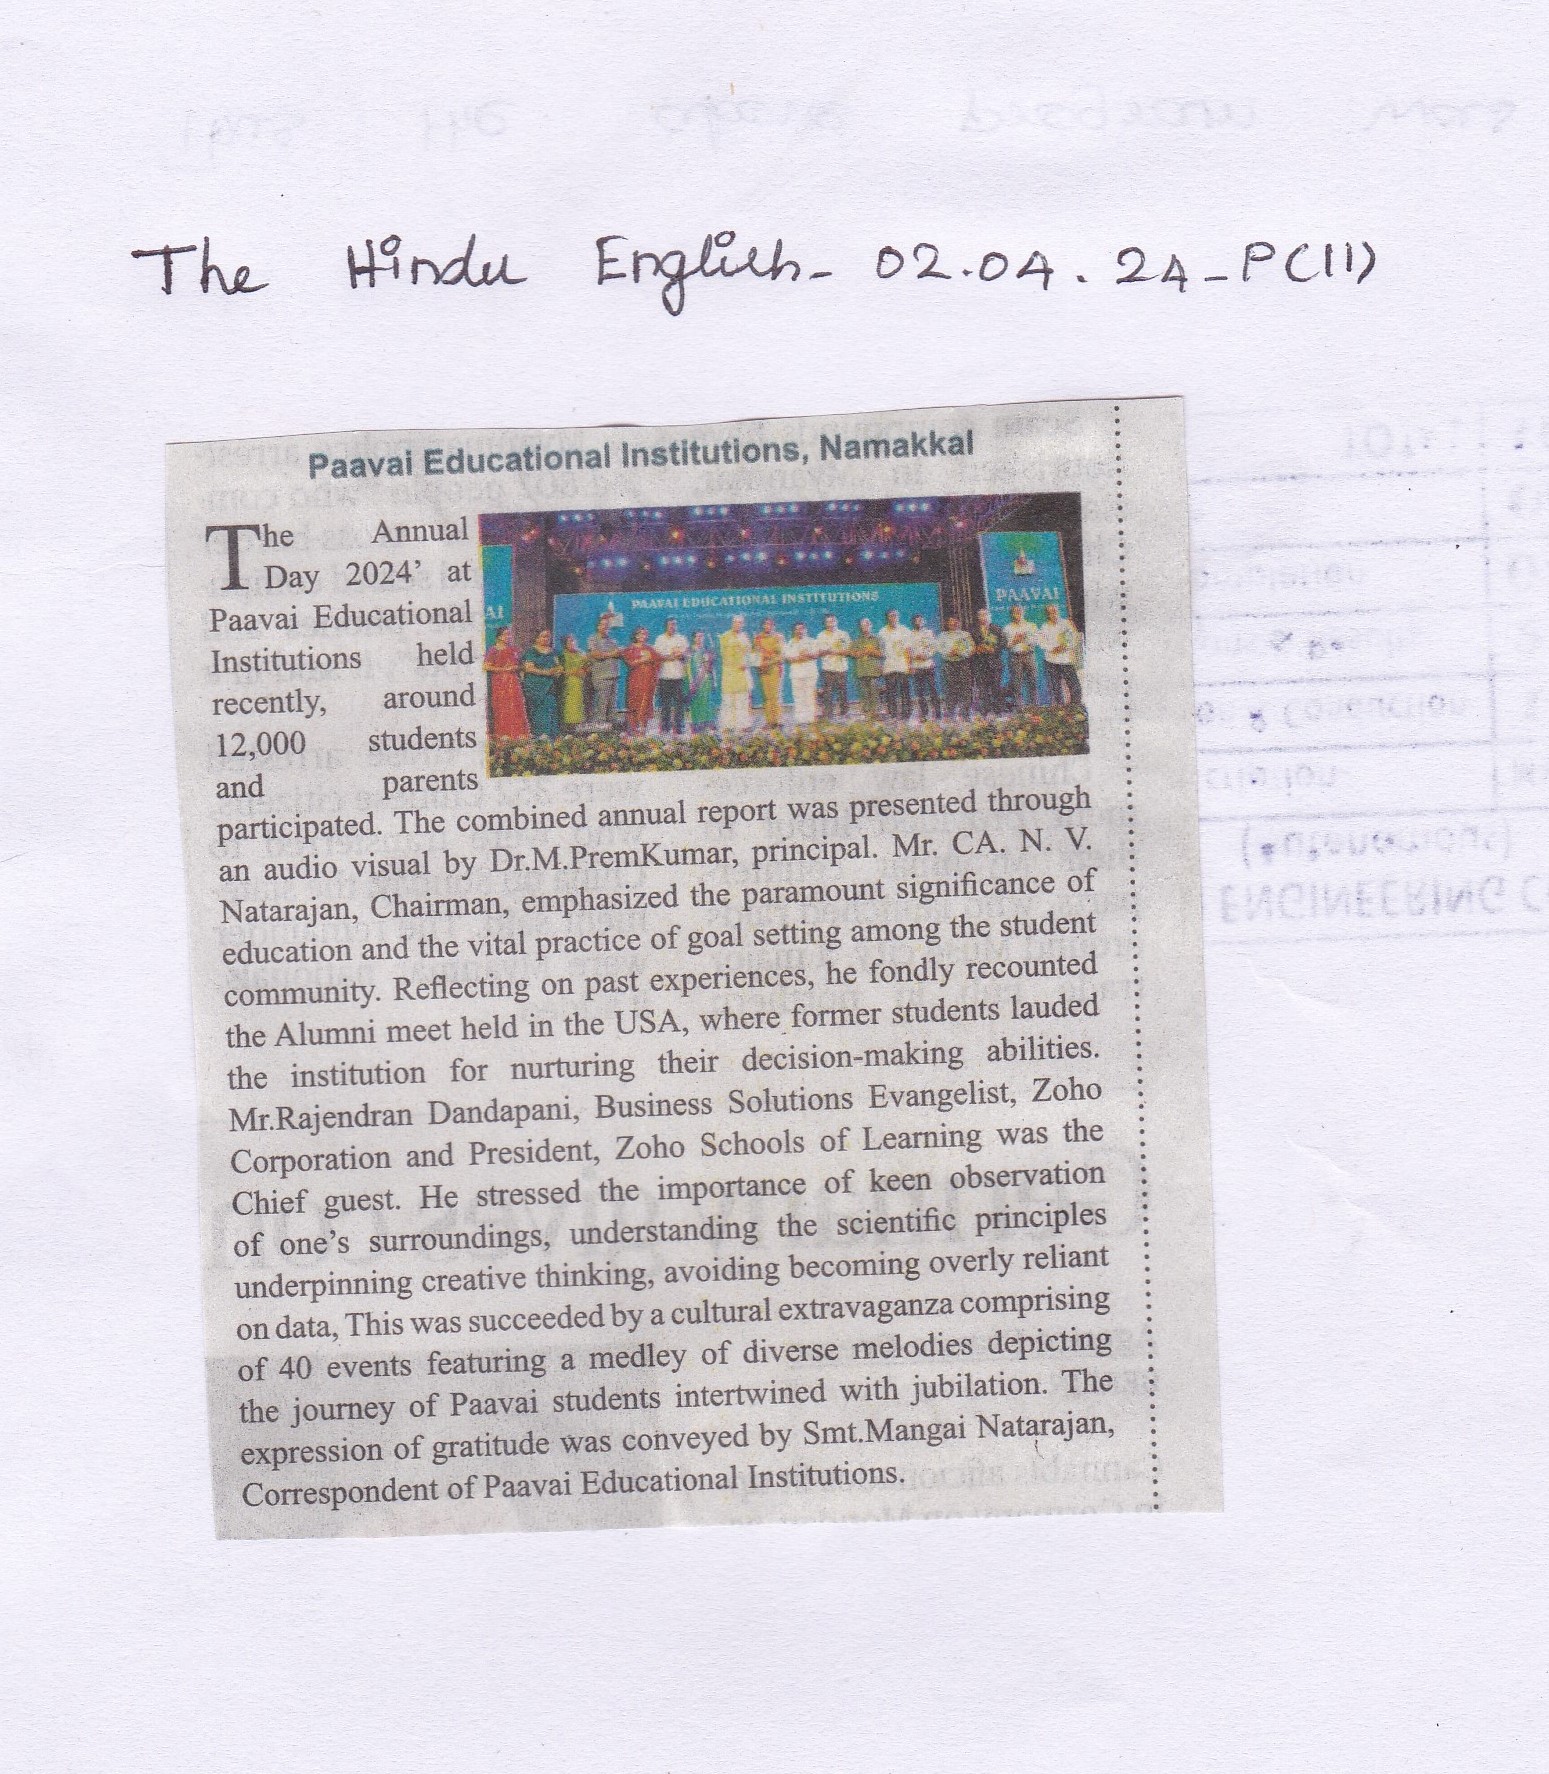 The Hindu English - 02.04.24 - P(11)
Paavai Educational Institutions, Namakkal
The Annual
Day 2024’ at
Paavai Educational
Institutions held
recently, around
12,000 students
and parents
PAAVAI EDUCATIONAL INSTITUTIONS
PAAVAI
AI
participated. The combined annual report was presented through
an audio visual by Dr.M.PremKumar, principal. Mr. CA. N. V.
Natarajan, Chairman, emphasized the paramount significance of
education and the vital practice of goal setting among the student
community. Reflecting on past experiences, he fondly recounted
the Alumni meet held in the USA, where former students lauded
the institution for nurturing their decision-making abilities.
Mr.Rajendran Dandapani, Business Solutions Evangelist, Zoho
Corporation and President, Zoho Schools of Learning was the
Chief guest. He stressed the importance of keen observation
of one’s surroundings, understanding the scientific principles
underpinning creative thinking, avoiding becoming overly reliant
on data, This was succeeded by a cultural extravaganza comprising
of 40 events featuring a medley of diverse melodies depicting
the journey of Paavai students intertwined with jubilation. The
expression of gratitude was conveyed by Smt.Mangai Natarajan,
Correspondent of Paavai Educational Institutions.